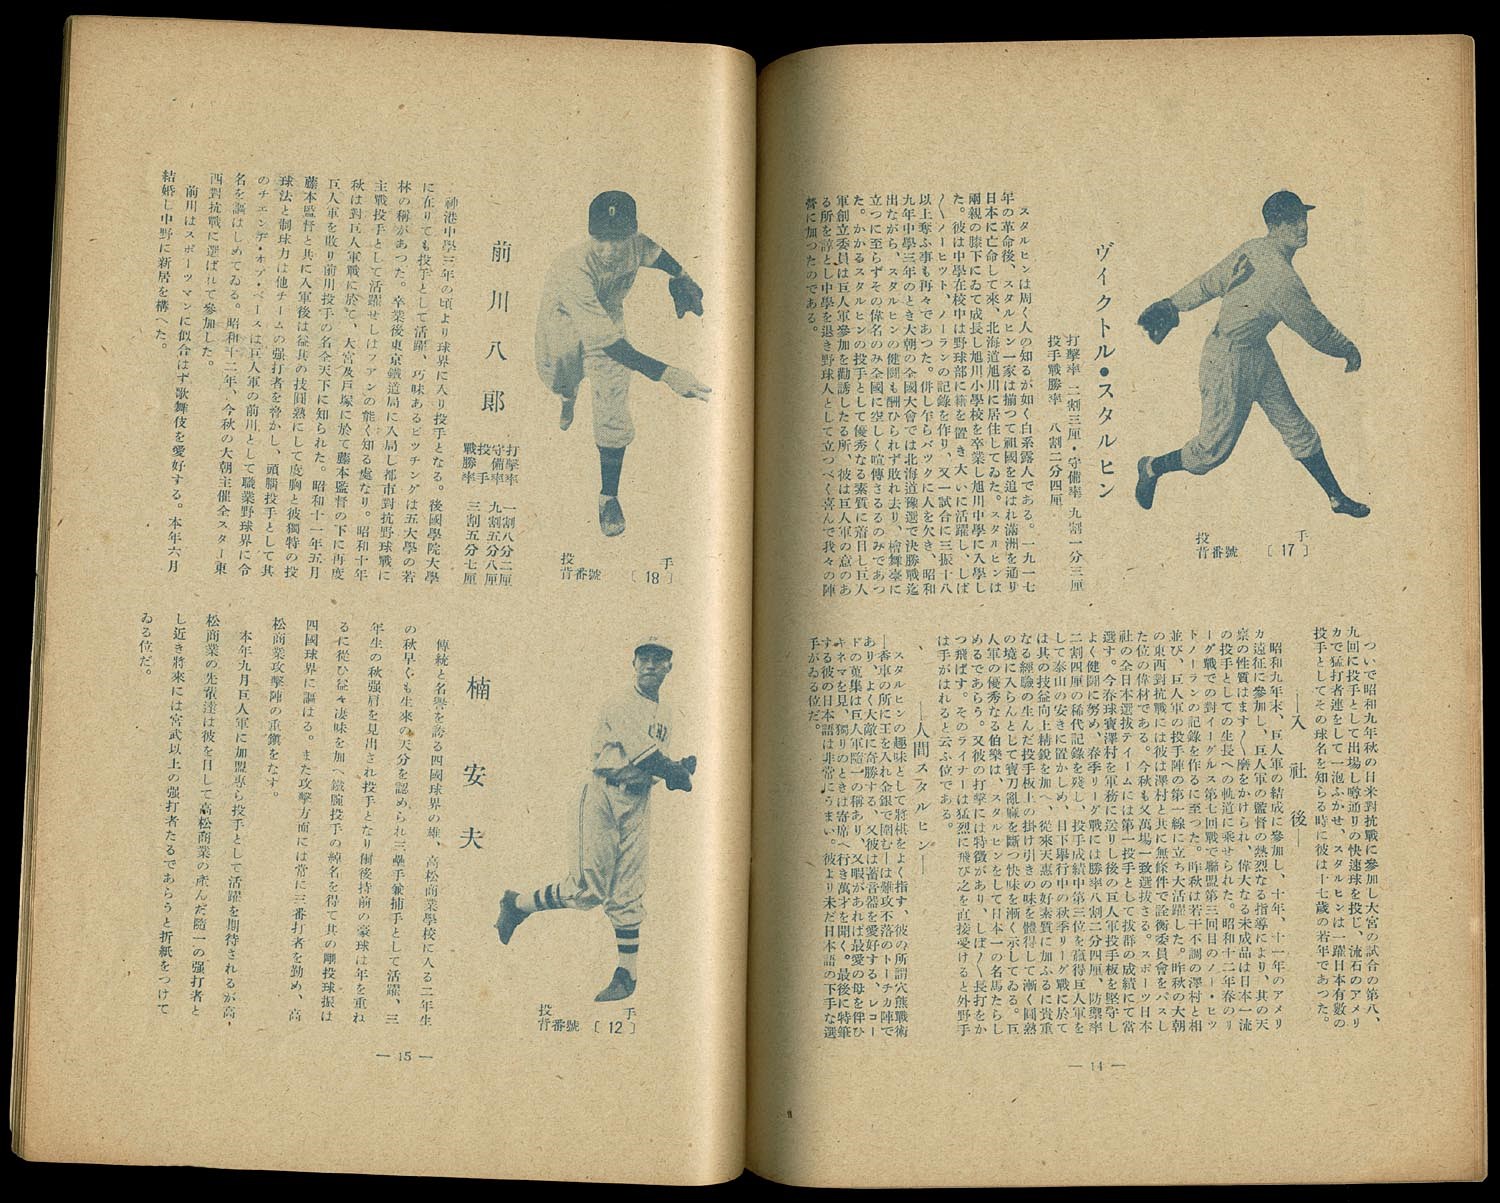 投手
背番號〔17〕
ヴィクトル・スタルヒン
打擊率 二割三厘・守備率 九割一分三厘
投手戰勝率 八割二分四厘
スタルヒンは周く人の知るが如く白系露人である。一九一七
年の革命後、スタルヒン一家は揃つて祖國を追はれ滿洲を通り
日本に亡命して來、北海道旭川に居住してゐた。スタルヒンは
兩親の膝下にゐて成長し旭川小學校を卒業し旭川中學に入學し
た。彼は中學在校中は野球部に籍を置き大いに活躍し、しば
〱ノーヒツト、ノーランの記錄を作り、又一試合に三振十八
以上奪ふ事も再々であつた。併し乍らバツクに人を欠き、昭和
九年中學三年のとき大朝の全國大會では北海道豫選で決勝戰迄
出ながら、スタルヒンの健鬪も酬ひられず敗れ去り、檜舞臺に
立つに至らずその偉名のみ全國に空しく喧傳さるるのみであつ
た。かかるスタルヒンの投手として優秀なる素質に着目し巨人
軍創立委員は巨人軍參加を勸誘したる所、彼は巨人軍の意のあ
る所を諒とし中學を退き野球人として立つべく喜んで我々の陣
營に加つたのである。
ついで昭和九年秋の日米對抗戰に參加し大宮の試合の第八、
九回に投手として出場し噂通りの快速球を投じ、流石のアメリ
カで猛打者連をして一泡ふかせ、スタルヒンは一躍日本有數の
投手としてその球名を知らる時に彼は十七歲の若年であつた。
―入社後―
昭和九年末、巨人軍の結成に參加し、十年、十一年のアメリ
カ遠征に參加し、巨人軍の監督の熱烈なる指導により、其の天
禀の性質はます〱磨をかけられ、偉大なる未成品は日本一流
の投手としての生長への軌道に乘せられた。昭和十二年春のリ
ーグ戰での對イーグルス第七回戰で聯盟第三回目のノー・ヒツ
トノーランの記錄を作るに至つた。昨秋は若干不調の澤村と相
並び、巨人軍の投手陣の第一線に立ち大活躍した。昨秋の大朝
の東西對抗戰には彼は澤村と共に無條件で詮衡委員會をパスし
た位の偉材である。今秋も又萬場一致選拔さる。スポーツ日本
社の全日本選拔ティームには第一投手として拔群の成績にて當
選す。今春球寶澤村を軍務に送りし後の巨人軍投手板を堅守し
よく健鬪に努め、春季リーグ戰には勝率八割二分四厘、防禦率
二割四厘の稀代記錄を殘し、投手成績中第三位を贏得巨人軍を
して泰山の安きに置かしめ、目下擧行中の秋季リーグ戰に於て
は其の技益向上精銳を加へ、從來天惠の好素質に加ふるに貴重
なる經驗の生んだ投手板上の掛け引きの味を體得して漸く圓熟
の境に入らんとして寳刀亂麻を斷つ快味を漸く示してゐる。巨
人軍の優秀なる伯樂は、スタルヒンをして日本一の名馬たらし
めるであらう。又彼の打擊には特徵があり、しば〱長打をか
つ飛ばす。そのライナーは猛烈に飛び之を直接受けると外野手
は手がはれると云ふ位である。
―人間スタルヒン―
スタルヒンの趣味として將棋をよく指す、彼の所謂穴熊戰術
―香車の所に王を入れ金銀で圍む―は難攻不落のトーチカ陣で
あり、よく大敵に奇勝する、又彼は蓄音器を愛好する、レコー
ドの蒐集は巨人軍隨一の稱あり、又暇があれば最愛の母を伴ひ
キネマを見、獨りのときは寄席へ行き萬才を聞く。最後に特筆
する彼の日本語は非常にうまい。彼より未だ日本語の下手な選
手がゐる位だ。
― 14 ―
投手
背番號〔18〕
前川八郎
打擊率 一割八分二厘
守備率 九割五分八厘
投手戰勝率 三割五分七厘
神港中學三年の頃より球界に入り投手となる。後國學院大學
に在りても投手として活躍、巧味あるピツチングは五大學の若
林の稱があつた。卒業後東京鐵道局に入局し都市對抗野球戰に
主戰投手として活躍せしはフアンの能く知る處なり。昭和十年
秋は對巨人軍戰に於て、大宮及戸塚に於て藤本監督の下に再度
巨人軍を敗り前川投手の名全天下に知られた。昭和十一年五月
藤本監督と共に入軍後は益其の技圓熟にして度胸と彼獨特の投
球法と制球力は他チームの强打者を脅かし、頭腦投手として其
のチエンヂ・オブ・ペースは巨人軍の前川として職業野球界に令
名を謳はしめてゐる。昭和十二年、今秋の大朝主催全スター東
西對抗戰に選ばれて參加した。
前川はスポーツマンに似合はず歌舞伎を愛好する。本年六月
結婚し中野に新居を構へた。
投手
背番號〔12〕
楠安夫
傳統と名譽を誇る四國球界の雄、高松商業學校に入る二年生
の秋早くも生來の天分を認められ三壘手兼捕手として活躍、三
年生の秋强肩を見出され投手となり爾後持前の豪球は年を重ね
るに從ひ益々凄味を加へ鐵腕投手の綽名を得て其の剛投球振は
四國球界に謳はる。また攻擊方面には常に三番打者を勤め、高
松商業攻擊陣の重鎭をなす。
本年九月巨人軍に加盟專ら投手として活躍を期待されるが高
松商業の先輩達は彼を目して高松商業の產んだ隨一の强打者と
し近き將來には宮武以上の强打者たるであらうと折紙をつけて
ゐる位だ。
― 15 ―